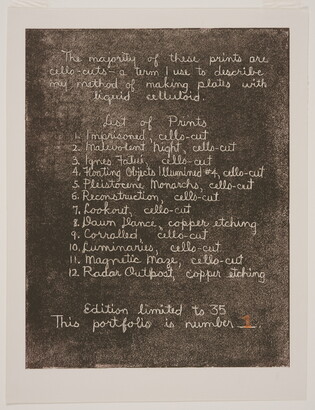 The majority of these prints are
cello-cuts – a term I use to describe
my method of making plates with
liquid celluloid.
List of Prints
1. Imprisoned, cello-cut
2. Malevolent Night, cello-cut
3. Ignes Fatui, cello-cut
4. Floating Objects Illumined #4, cello-cut
5. Pleistocene Monarchs, cello-cut
6. Reconstruction, cello-cut
7. Lookout, cello-cut
8. Dawn Dance, copper etching
9. Corralled, cello-cut
10. Luminaries, cello-cut
11. Magnetic Maze, cello-cut
12. Radar Outpost, copper etching
Edition limited to 35
This portfolio is number 1.